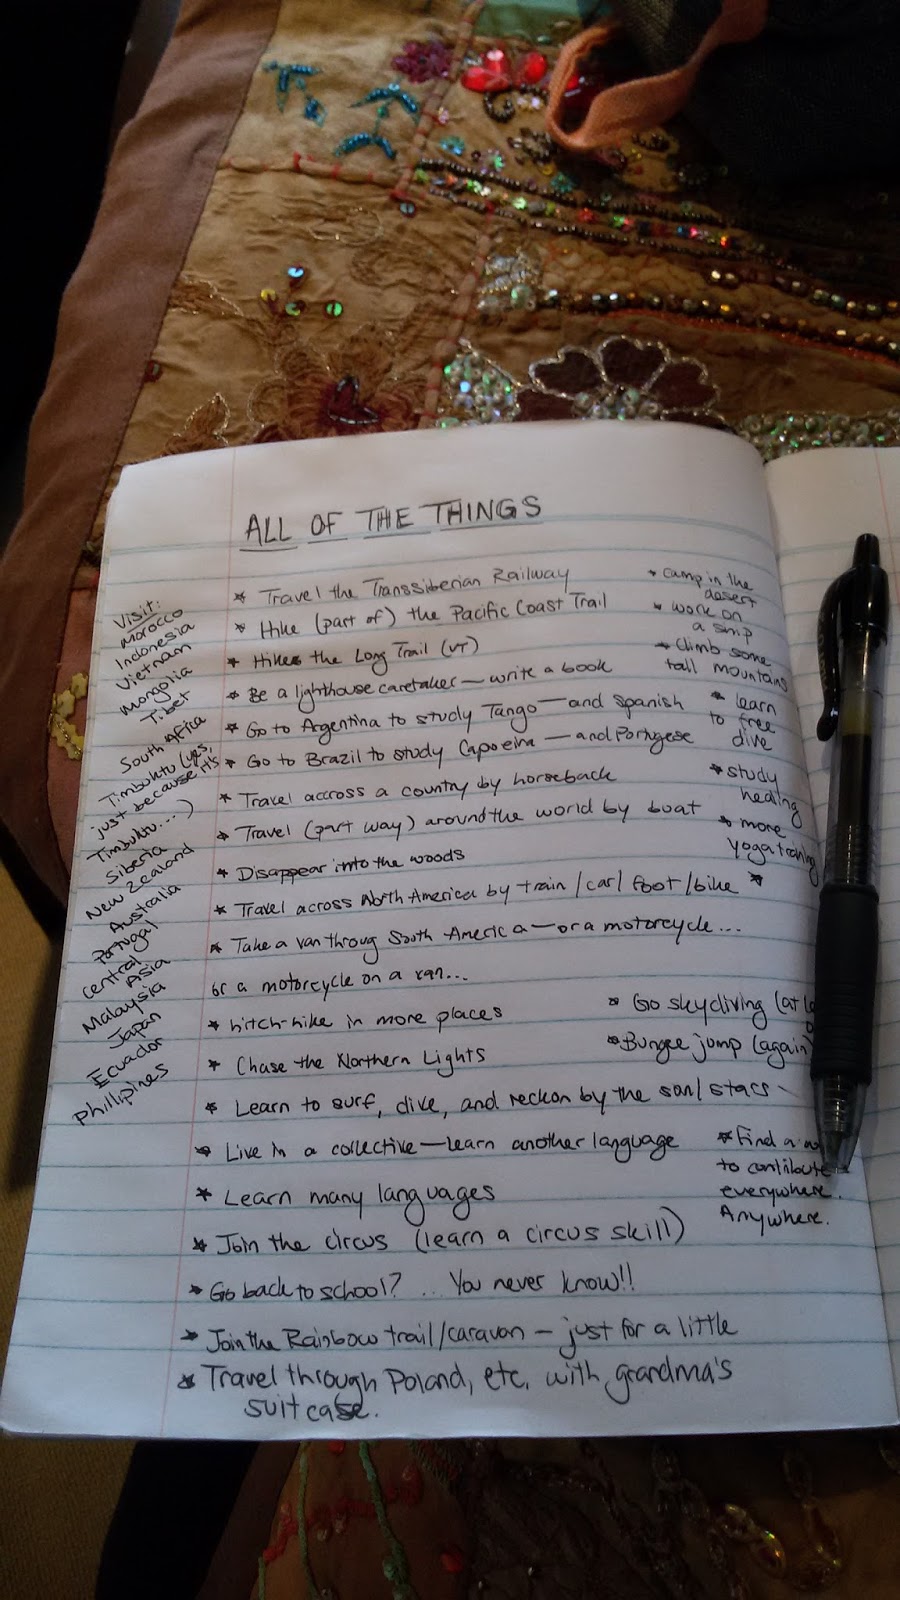 ALL OF THE THINGS
Visit:
morocco
Indonesia
Vietnam
mongolia
Tibet
South Africa
Timbuktu (yes,
just because it's
Timbuktu....)
Siberia
New Zealand
Australia
Portugal
Central Asia
Malaysia
Japan
Ecuador
phillipines
* Travel the Transsiberian Railway
* Hike (part of) the Pacific Coast Trail
* Hike the Long Trail (VT)
* Be a lighthouse caretaker — write a book
* Go to Argentina to study Tango — and Spanish
* Go to Brazil to study Capoeira — and Portugese
* Travel accross a country by horseback
* Travel (part way) around the world by boat
* Disappear into the woods
* Travel across North America by train/car/foot/bike *
* Take a van throug South America — or a motorcycle...
or a motorcycle on a van...
* hitch-hike in more places
* Chase the Northern Lights
* Learn to surf, dive, and reckon by the sun/stars
* Live in a collective — learn another language
* Learn many languages
* Join the circus (learn a circus skill)
* Go back to school? ... You never know!!
* Join the Rainbow trail/caravan — just for a little
* Travel through Poland, etc. with grandma's
suitcase.
* camp in the
desert
* work on
a ship
* Climb some
tall mountains
* learn
to free
dive
* study
healing
* more
yoga training
* Go skydiving (at
* Bungee jump (again)
* Find a
to contribute
everywhere.
Anywhere.